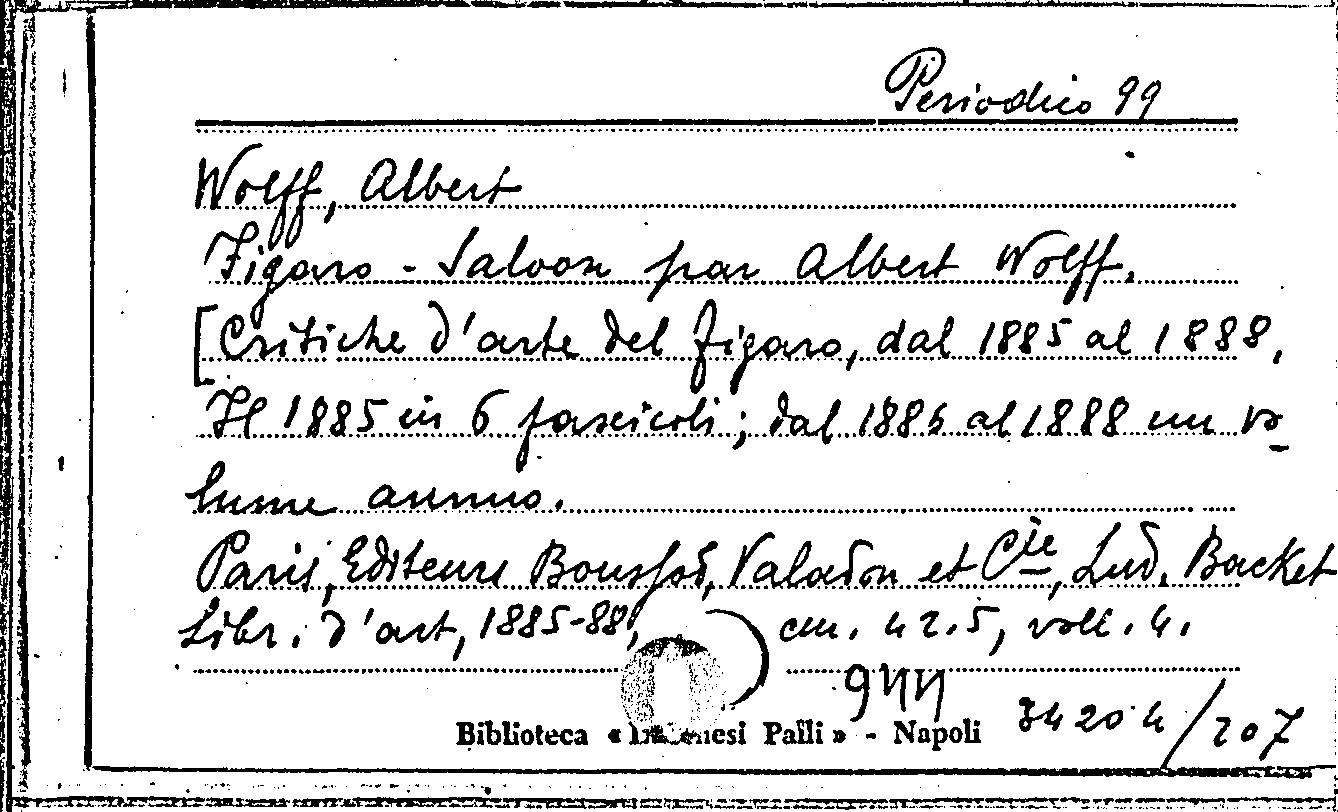 Periodico 99
Wolff, Albert
Figaro - Saloon par Albert Wolff.
[Critiche d'arte del Figaro, dal 1885 al 1888.
Il 1885 in 6 fascicoli; dal 1886 al 1888 un vo-
lume annuo.
Paris, Editeurs Boussod, Valadon et Cie, Lud. Backet
Libr. d'art, 1885-88, cm. 42.5, voll. 4.
944
Biblioteca « Lucchesi Palli » - Napoli 34204/207